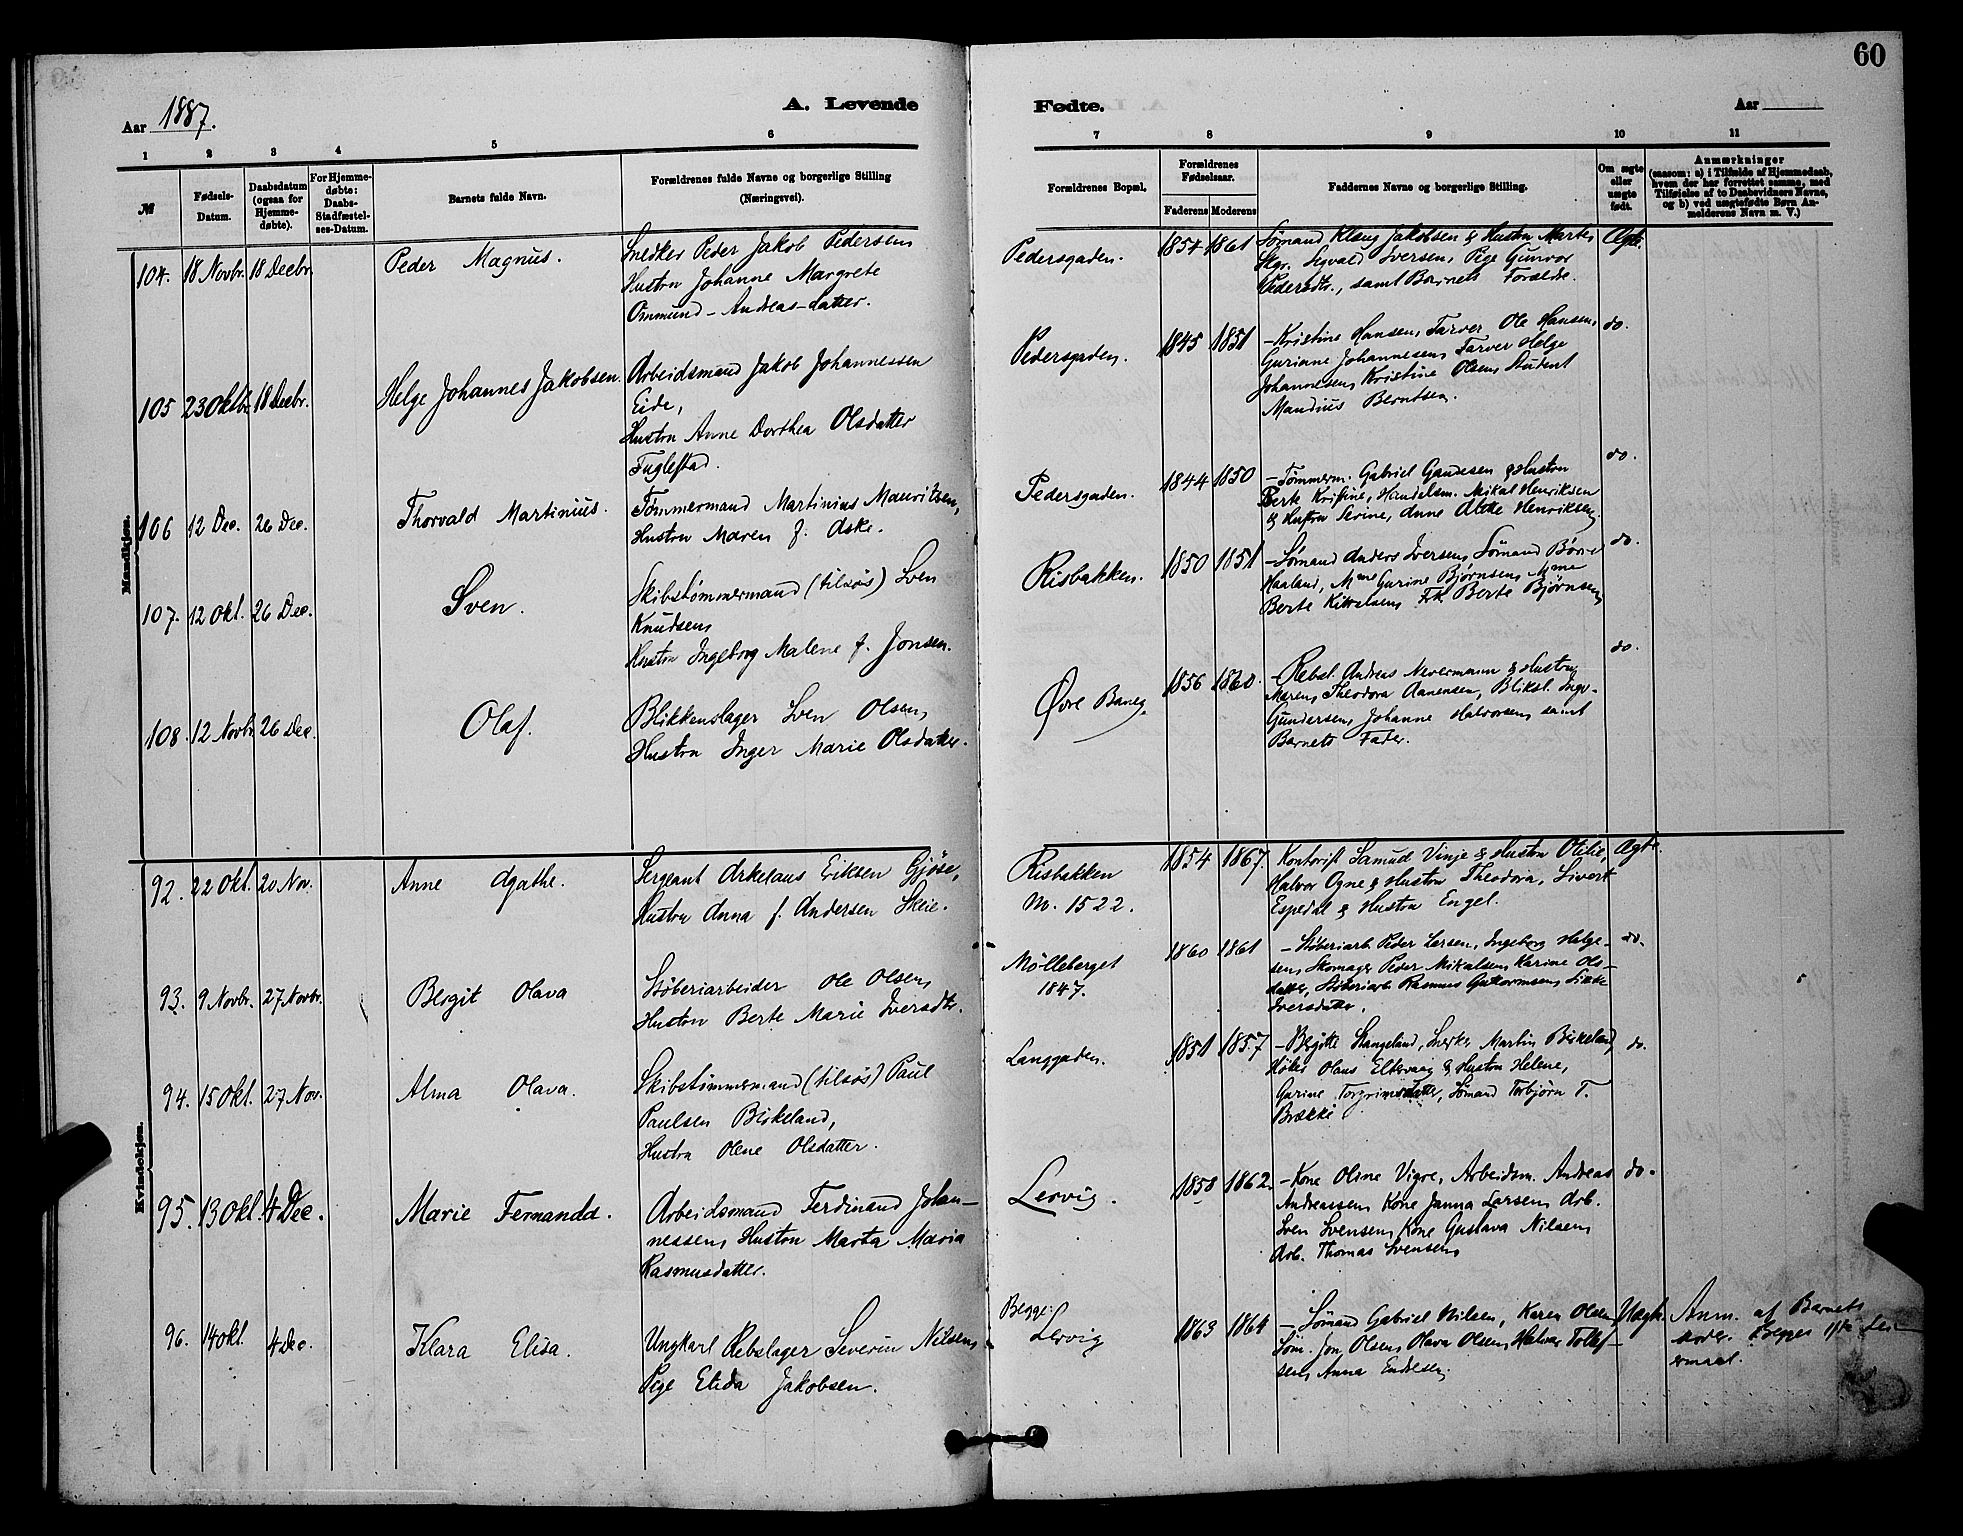 60
Aar 1887.
A. Levende
Fødte.
Aar
1 2 3 4 5 6
7 8 9 10 11
№
Fødsels-
Datum.
Daabsdatum
(ogsaa for
Hjemme-
døbte).
For Hjemme-
døbte:
Daabs-
Stadfæstel-
ses-Datum.
Barnets fulde Navn.
Forældrenes fulde Navne og borgerlige Stilling
(Næringsvei).
Forældrenes Bopæl.
Forældrenes
Fødselsaar.
Faderens Moderens
Faddernes Navne og borgerlige Stilling.
Om ægte
eller
uægte
født.
Anmærkninger
(saasom: a) i Tilfælde af Hjemmedaab,
hvem der har forrettet samme, med
Tilføielse af to Daabsvidners Navne,
og b) ved uægtefødte Børn An-
melderens Navn m. V.)
Mandkjøn.
104. 18 Novbr. 18 Decbr. Peder Magnus.
Snedker Peder Jakob Pedersen
Hustru Johanne Margrete
Ommund-Andreas-datter.
Pedersgaden. 1854 1861
Sømand Klaus Jakobsen & Hustru Marte,
Sigvald Iversen, Pige Gunvor
Pedersdtr., samt Barnets Forældre.
Ægte.
105 23 Oktbr. 18 Decbr. Helge Johannes Jakobsen.
Arbeidsmand Jakob Johannessen
Eide,
Hustru Anne Dorthea Olsdatter
Fuglestad.
Pedersgaden. 1845 1851
- Kristine Hansen, Farver Ole Hansen,
Gurianne Johannesen, Farver Helge
Johannesen, Kristine Olsen, Student
Mandius Berntsen.
do.
106 12 Dec. 26 Dec. Thorvald Martinius.
Tømmermand Martinius Mauritsen,
Hustru Maren f. Aske.
Pedersgaden. 1844 1850
- Tømmerm. Gabriel Gaudesen & Hustru
Berte Kristine, Handelsm. Mikal Henriksen
& Hustru Serine, Anne Henriksen.
do.
107. 12 Okt. 26 Dec. Sven.
Skibstømmermand (tilsøs) Sven
Knudsen
Hustru Ingeborg Malene f. Jonsen.
Risbakken. 1850 1851
- Sømand Anders Iversen, Sømand Børre
Haaland, Mme Gurine Bjørnsen, Mme
Berte Kittelsen, Frk Berte Bjørnsen
do.
108. 12 Novbr. 26 Dec. Olaf.
Blikkenslager Sven Olsen,
Hustru Inger Marie Olsdatter.
Øvre Baneg. 1856 1860.
- Rebsl. Andreas Nevermann & Hustru
Maren, Theodora Aanensen, Bliksl. Ingv.
Gundersen, Johanne Halvorsen, samt
Barnets Fader.
do.
Kvindekjøn.
92. 22 Okt. 20 Nov. Anne Agathe.
Sergeant Arkelaus Eriksen Gjøse,
Hustru Anna f. Andersen Skeie.
Risbakken
M. 1522.
1854 1867.
Kontorist Samuel Vinje & Hustru Otilie,
Halvor Ogne & Hustru Theodora, Sivert
Espedal & Hustru Engel.
Ægte.
93. 9 Novbr. 27 Novbr. Bergit Olava
Støberiarbeider Ole Olsen,
Hustru Berte Marie Iversdtr.
Mølleberget
1847.
1860 1861
- Støberiarb. Peder Larsen, Ingeborg Helge-
sen, Skomager Peder Mikalsen, Karine Ols-
datter, Støberiarb Rasmus Guttormsen, Sikke
Iversdatter.
do.
94. 15 Okt. 27 Nov. Alma Olava.
Skibstømmermand (tilsøs) Paul
Paulsen Birkeland,
Hustru Olene Olsdatter.
Langgaden. 1851 1857
- Birgitte Stangeland, Snedker Martin Birkeland,
Olaus Eltervaag & Hustru Helene,
Gurine Torgrimsdatter, Sømand Torbjørn T.
Brække
do.
95. 13 Okt. 4 Dec. Marie Fernanda.
Arbeidsmand Ferdinand Johan-
nessen, Hustru Marta Maria
Rasmusdatter.
Lervig. 1858 1862.
- Kone Oline Vigre, Arbeidsm. Andreas
Andreassen, Kone Janna Larsen, Arb.
Sven Svensen, Kone Gustava Nilsen,
Arb. Thomas Svensen,
do.
96. 14 Okt. 4 Dec. Klara Elisa.
Ungkarl Rebslager Severin Nilsen,
Pige Elida Jakobsen.
Begge:
Lervig
1863 1864
- Sømand Gabriel Nilsen, Karen Olsen,
Søm. Jon Olsen, Olava Olsen, Halvor Tollef-
sen, Anna Endresen,
Uægte.
Anm. af Barnets
Moder. Begges 1ste Lei-
ermaal.